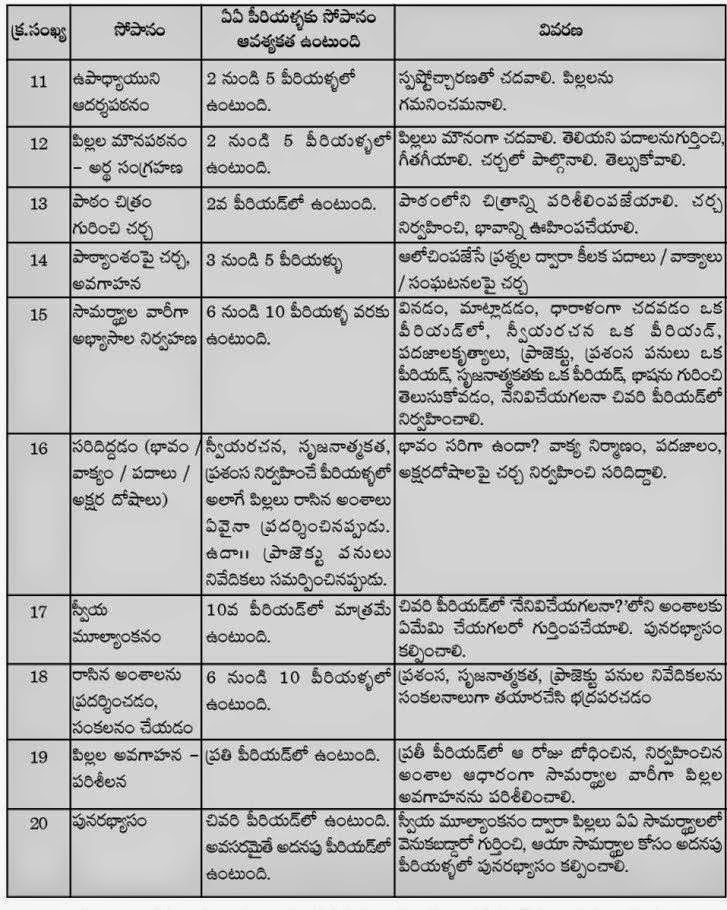 క్ర.సంఖ్య సోపానం ఏఏ పీరియళ్ళకు సోపానం వివరణ
ఆవశ్యకత ఉంటుంది
11 ఉపాధ్యాయుని 2 నుండి 5 పీరియళ్లలో స్పష్టోచ్ఛారణతో చదవాలి. పిల్లలను
ఆదర్శపఠనం ఉంటుంది. గమనించమనాలి.
12 పిల్లల మౌనపఠనం 2 నుండి 5 పీరియళ్ళలో పిల్లలు మౌనంగా చదవాలి. తెలియని పదాలనుగుర్తించి,
– అర్థ సంగ్రహణ ఉంటుంది. గీతగీయాలి. చర్చలో పాల్గొనాలి. తెల్సుకోవాలి.
13 పాఠం చిత్రం 2వ పీరియడ్‌లో ఉంటుంది. పాఠంలోని చిత్రాన్ని పరిశీలింపజేయాలి. చర్చ
గురించి చర్చ నిర్వహించి, భావాన్ని ఊహింపచేయాలి.
14 పాఠ్యాంశంపై చర్చ, 3 నుండి 5 పీరియళ్ళు ఆలోచింపజేసే ప్రశ్నల ద్వారా కీలక పదాలు / వాక్యాలు
అవగాహన / సంఘటనలపై చర్చ
15 సామర్థ్యాల వారీగా 6 నుండి 10 పీరియళ్ళ వరకు వినడం, మాట్లాడడం, ధారాళంగా చదవడం ఒక
అభ్యాసాల నిర్వహణ ఉంటుంది. పీరియడ్‌లో, స్వీయరచన ఒక పీరియడ్,
పదజాలకృత్యాలు, ప్రాజెక్టు, ప్రశంస పనులు ఒక
పీరియడ్, సృజనాత్మకతకు ఒక పీరియడ్, భాషను గురించి
తెలుసుకోవడం, నేనివిచేయగలనా చివరి పీరియడ్‌లో
నిర్వహించాలి.
16 సరిదిద్దడం (భావం / స్వీయరచన, సృజనాత్మకత, భావం సరిగా ఉందా? వాక్య నిర్మాణం, పదజాలం,
వాక్యం / పదాలు / ప్రశంస నిర్వహించే పీరియళ్ళలో అక్షరదోషాలపై చర్చ నిర్వహించి సరిదిద్దాలి.
అక్షర దోషాలు) అలాగే పిల్లలు రాసిన అంశాలు
ఏవైనా ప్రదర్శించినప్పుడు.
ఉదా॥ ప్రాజెక్టు పనులు
నివేదికలు సమర్పించినప్పుడు.
17 స్వీయ 10వ పీరియడ్‌లో మాత్రమే చివరి పీరియడ్‌లో 'నేనివిచేయగలనా?'లోని అంశాలకు
మూల్యాంకనం ఉంటుంది. ఏమేమి చేయగలరో గుర్తింపచేయాలి. పునరభ్యాసం
కల్పించాలి.
18 రాసిన అంశాలను 6 నుండి 10 పీరియళ్ళలో ప్రశంస, సృజనాత్మకత, ప్రాజెక్టు పనుల నివేదికలను
ప్రదర్శించడం, ఉంటుంది. సంకలనాలుగా తయారచేసి భద్రపరచడం
సంకలనం చేయడం
19 పిల్లల అవగాహన – ప్రతి పీరియడ్‌లో ఉంటుంది. ప్రతీ పీరియడ్‌లో ఆ రోజు బోధించిన, నిర్వహించిన
పరిశీలన అంశాల ఆధారంగా సామర్థ్యాల వారీగా పిల్లల
అవగాహనను పరిశీలించాలి.
20 పునరభ్యాసం చివరి పీరియడ్‌లో ఉంటుంది. స్వీయ మూల్యాంకనం ద్వారా పిల్లలు ఏఏ సామర్థ్యాలలో
అవసరమైతే అదనపు పీరియడ్‌లో వెనుకబడ్డారో గుర్తించి, ఆయా సామర్థ్యాల కోసం అదనపు
ఉంటుంది. పీరియళ్ళలో పునరభ్యాసం కల్పించాలి.